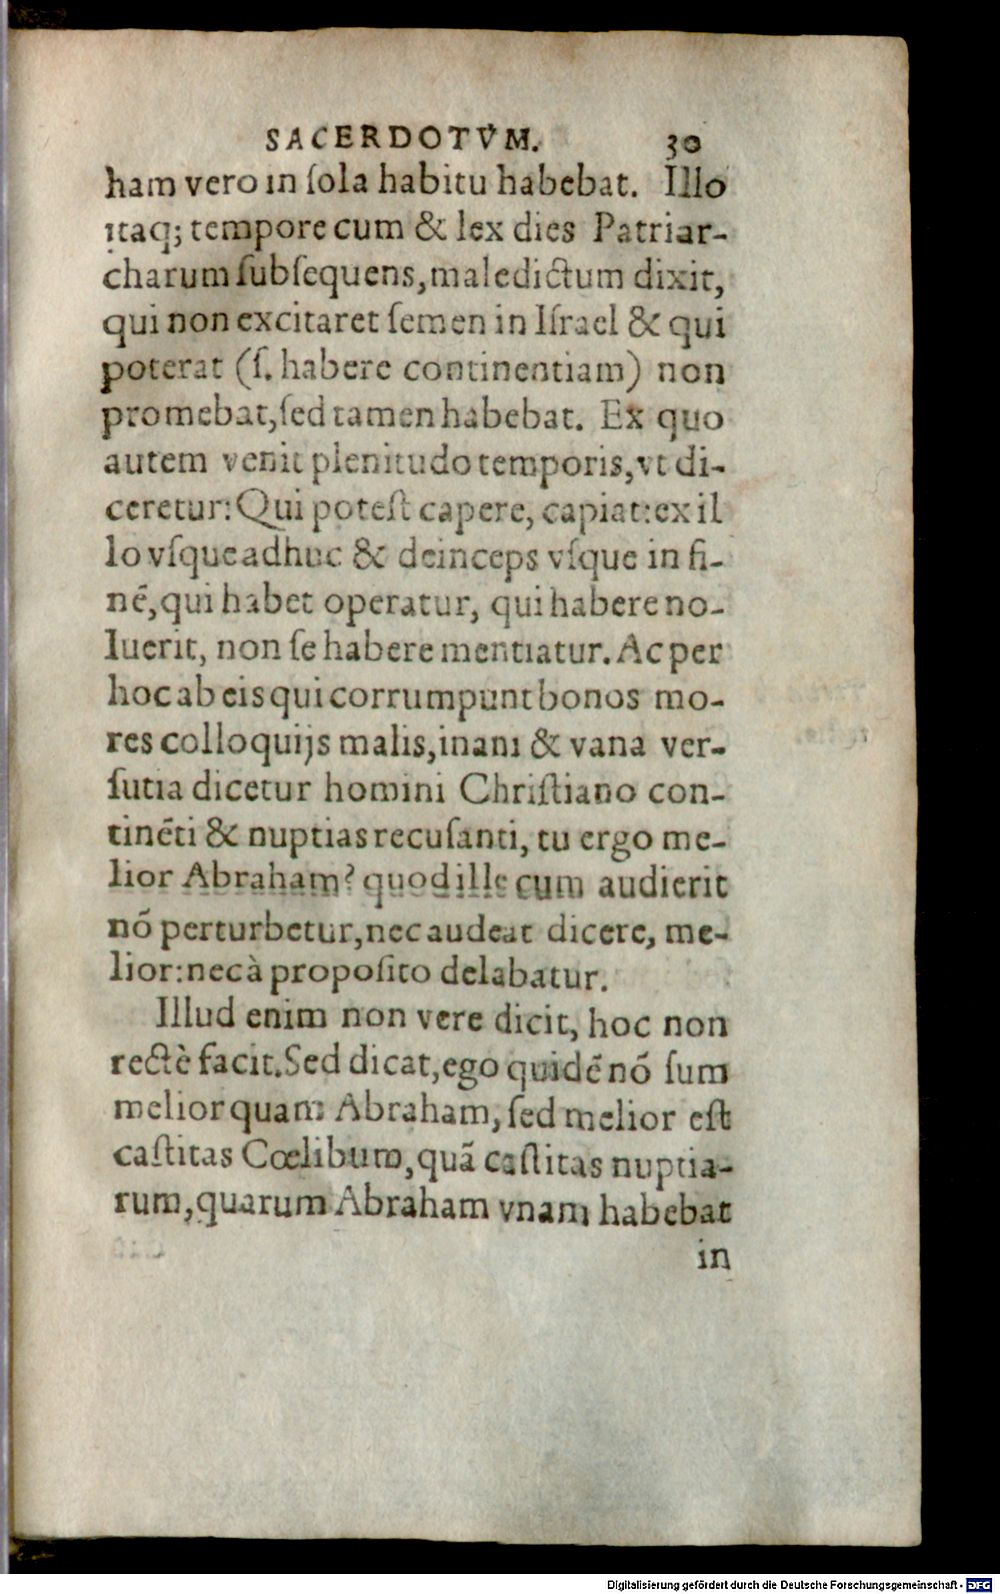 SACERDOTVM. 30
ham vero in ſola habitu habebat. Illo
itaq; tempore cum & lex dies Patriar-
charum ſubſequens, maledictum dixit,
qui non excitaret ſemen in Iſrael & qui
poterat (ſ. habere continentiam) non
promebat, ſed tamen habebat. Ex quo
autem venit plenitudo temporis, vt di-
ceretur: Qui poteſt capere, capiat: ex il
lo vſque adhuc & deinceps vſque in fi-
nẽ, qui habet operatur, qui habere no-
luerit, non ſe habere mentiatur. Ac per
hoc ab eis qui corrumpunt bonos mo-
res colloquijs malis, inani & vana ver-
ſutia dicetur homini Chriſtiano con-
tinẽti & nuptias recuſanti, tu ergo me-
lior Abraham? quod ille cum audierit
nõ perturbetur, nec audeat dicere, me-
lior: nec à propoſito delabatur.
Illud enim non vere dicit, hoc non
rectè facit. Sed dicat, ego quidẽ nõ ſum
melior quam Abraham, ſed melior eſt
caſtitas Cœlibum, quã caſtitas nuptia-
rum, quarum Abraham vnam habebat
in
Digitalisierung gefördert durch die Deutsche Forschungsgemeinschaft - DFG